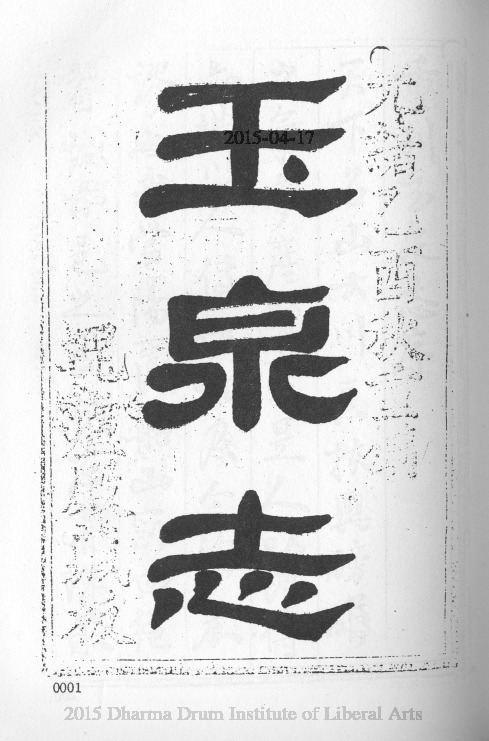 光緒乙酉秋重鐫
玉泉志
2015-04-17
板藏
0001
2015 Dharma Drum Institute of Liberal Arts